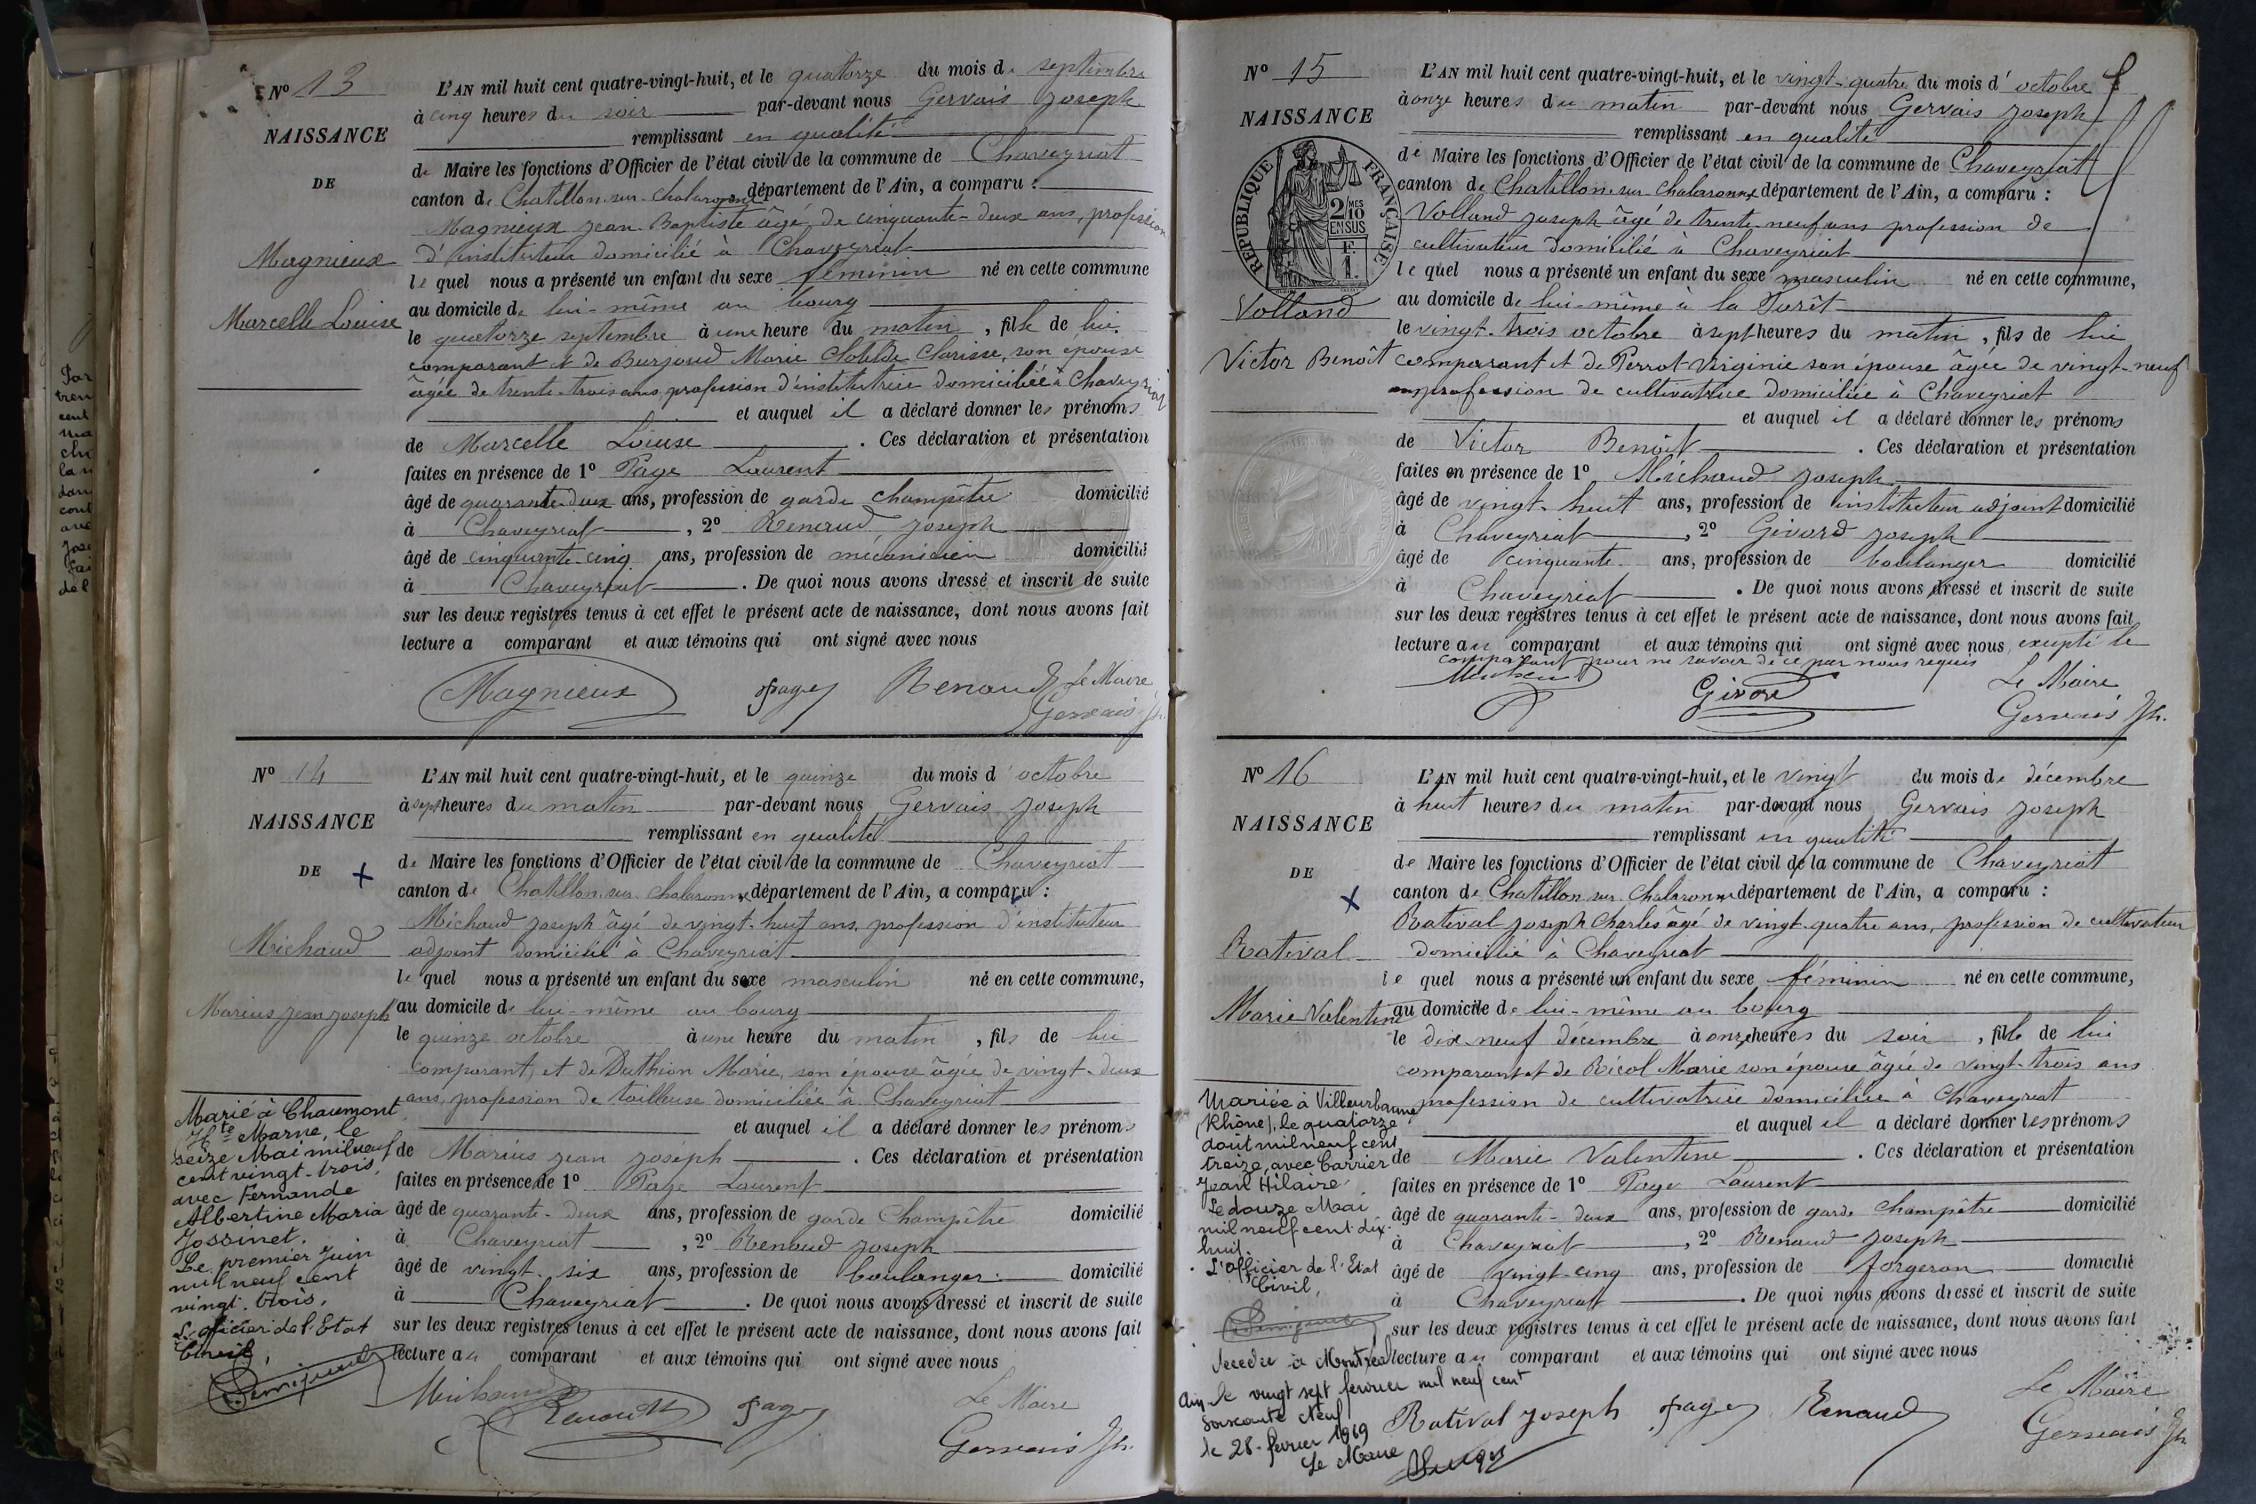 N° 13
NAISSANCE
DE
Magnieux
Marcelle Louise
L'AN mil huit cent quatre-vingt-huit, et le quatorze du mois de septembre
à cinq heures du soir par-devant nous Gervais Joseph
remplissant en qualité
de Maire les fonctions d'Officier de l'état civil de la commune de Chaveyriat
canton de Chatillon-sur-Chalaronne, département de l'Ain, a comparu :
Magnieux Jean-Baptiste âgé de cinquante-deux ans, profession
d'instituteur domicilié à Chaveyriat
le quel nous a présenté un enfant du sexe féminin né en cette commune
au domicile de lui-même au bourg
le quatorze septembre à une heure du matin, fille de lui
comparant et de Marie Clotilde Clarisse, son épouse
âgée de trente-trois ans, profession d'institutrice domiciliée à Chaveyriat
et auquel il a déclaré donner les prénoms
de Marcelle Louise. Ces déclaration et présentation
faites en présence de 1° Page Laurent
âgé de quarante-deux ans, profession de garde champêtre domicilié
à Chaveyriat, 2° Renaud Joseph
âgé de cinquante-cinq ans, profession de mécanicien domicilié
à Chaveyriat. De quoi nous avons dressé et inscrit de suite
sur les deux registres tenus à cet effet le présent acte de naissance, dont nous avons fait
lecture a comparant et aux témoins qui ont signé avec nous
Magnieux Page Renaud Le Maire
Gervais Jh.
N° 14
NAISSANCE
DE
Michaud
Marius Jean Joseph
L'AN mil huit cent quatre-vingt-huit, et le quinze du mois d'octobre
à sept heures du matin par-devant nous Gervais Joseph
remplissant en qualité
de Maire les fonctions d'Officier de l'état civil de la commune de Chaveyriat
canton de Chatillon-sur-Chalaronne département de l'Ain, a comparu :
Michaud Joseph âgé de vingt-huit ans, profession d'instituteur
adjoint domicilié à Chaveyriat
le quel nous a présenté un enfant du sexe masculin né en cette commune,
au domicile de lui-même au bourg
le quinze octobre à une heure du matin, fils de lui
comparant, et de Duthion Marie, son épouse âgée de vingt-deux
ans, profession de tailleuse domiciliée à Chaveyriat
et auquel il a déclaré donner les prénoms
de Marius Jean Joseph. Ces déclaration et présentation
faites en présence de 1° Page Laurent
âgé de quarante-deux ans, profession de garde Champêtre domicilié
à Chaveyriat, 2° Renaud Joseph
âgé de vingt-six ans, profession de boulanger domicilié
à Chaveyriat. De quoi nous avons dressé et inscrit de suite
sur les deux registres tenus à cet effet le présent acte de naissance, dont nous avons fait
lecture au comparant et aux témoins qui ont signé avec nous
Michaud Renaud Page Le Maire
Gervais Jh.
Marié à Chaumont
Hte Marne, le
seize Mai mil neuf
cent vingt-trois,
avec Fernande
Albertine Maria
Jossinet.
Le premier Juin
mil neuf cent
vingt-trois,
L'officier de l'Etat
Civil,
N° 15
NAISSANCE
RÉPUBLIQUE FRANÇAISE
2/10 MES
EN SUS
F.
1.
Volland
Victor Benoît
L'AN mil huit cent quatre-vingt-huit, et le vingt-quatre du mois d'octobre
à onze heures du matin par-devant nous Gervais Joseph
remplissant en qualité
de Maire les fonctions d'Officier de l'état civil de la commune de Chaveyriat
canton de Chatillon-sur-Chalaronne département de l'Ain, a comparu :
Volland Joseph âgé de trente-neuf ans profession de
cultivateur domicilié à Chaveyriat
le quel nous a présenté un enfant du sexe masculin né en cette commune,
au domicile de lui-même à la Forêt
le vingt-trois octobre à sept heures du matin, fils de lui
comparant et de Perrot Virginie son épouse âgée de vingt-neuf
ans profession de cultivatrice domiciliée à Chaveyriat
et auquel il a déclaré donner les prénoms
de Victor Benoît. Ces déclaration et présentation
faites en présence de 1° Michaud Joseph
âgé de vingt-huit ans, profession de instituteur adjoint domicilié
à Chaveyriat, 2° Givord Joseph
âgé de cinquante ans, profession de boulanger domicilié
à Chaveyriat. De quoi nous avons dressé et inscrit de suite
sur les deux registres tenus à cet effet le présent acte de naissance, dont nous avons fait
lecture au comparant et aux témoins qui ont signé avec nous, excepté le
comparant pour ne savoir de ce par nous requis
Michaud Givord Le Maire
Gervais Jh.
N° 16
NAISSANCE
DE
Ratival
Marie Valentine
L'AN mil huit cent quatre-vingt-huit, et le vingt du mois de décembre
à huit heures du matin par-devant nous Gervais Joseph
remplissant en qualité
de Maire les fonctions d'Officier de l'état civil de la commune de Chaveyriat
canton de Chatillon-sur-Chalaronne département de l'Ain, a comparu :
Ratival Joseph Charles âgé de vingt-quatre ans, profession de cultivateur
domicilié à Chaveyriat
le quel nous a présenté un enfant du sexe féminin né en cette commune,
au domicile de lui-même au bourg
le dix-neuf décembre à onze heures du soir, fille de lui
comparant et de Ricol Marie son épouse âgée de vingt-trois ans
profession de cultivatrice domiciliée à Chaveyriat
et auquel il a déclaré donner les prénoms
de Marie Valentine. Ces déclaration et présentation
faites en présence de 1° Page Laurent
âgé de quarante-deux ans, profession de garde champêtre domicilié
à Chaveyriat, 2° Renaud Joseph
âgé de vingt-cinq ans, profession de forgeron domicilié
à Chaveyriat. De quoi nous avons dressé et inscrit de suite
sur les deux registres tenus à cet effet le présent acte de naissance, dont nous avons fait
lecture au comparant et aux témoins qui ont signé avec nous
Ratival Joseph Page Renaud Le Maire
Gervais Jh
Mariée à Villeurbanne
(Rhône), le quatorze
août mil neuf cent
treize, avec Carrier
Jean Hilaire.
Le douze Mai
mil neuf cent dix-
huit.
L'officier de l'Etat
Civil,
décédée à Montréal
Ain le vingt sept février mil neuf cent
soixante neuf
le 28 février 1969
Le Maire